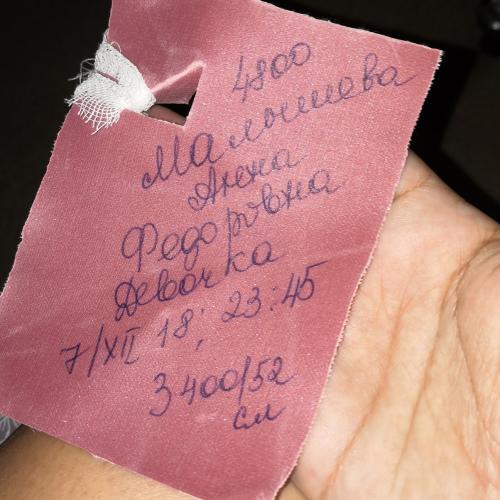 4800
Малышева
Анна
Федоровна
Девочка
7/XII 18; 23:45
3400/52
см